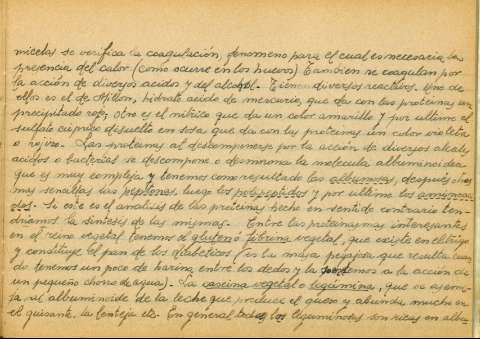 micelas se verifica la coagulación, fenomeno para el cual es necesaria la
presencia del calor (como ocurre en los huevos) Tambien se coagulan por
la acción de diversos acidos y del alcohol. Tienen diversos reactivos. Uno de
ellos es el de Millon, hidrato acido de mercurio, que da con las proteinas un
precipitado rojo; otro es el nitrico que da un color amarillo y por ultimo el
sulfato cuprico disuelto en sosa que da con las proteinas un color violeta
o rojizo. Las proteinas al descomponerse por la acción de diversos alcalis,
acidos o bacterias se descompone o desmorona la molecula albuminoidea
que es muy compleja y tenemos como resultado las albumosas, después otras
mas sencillas las peptonas, luego los polipeptidos y por ultimo los
Si este es el analisis de las proteinas hecho en sentido contrario ten-
driamos la sintesis de las mismas. Entre las proteinas mas interesantes
en el reino vegetal tenemos el gluten o fibrina vegetal, que existe en el trigo
y constituye el pan de los diabeticos (es la masa pegajosa que resulta cuan-
do tenemos un poco de harina entre los dedos y la sometemos a la acción de
un pequeño chorro de agua). La caseina vegetal o legumina, que se aseme-
ja al albuminoide de la leche que produce el queso y abunda mucho en
el guisante, la lenteja etc. En general todas las leguminosas son ricas en albu-